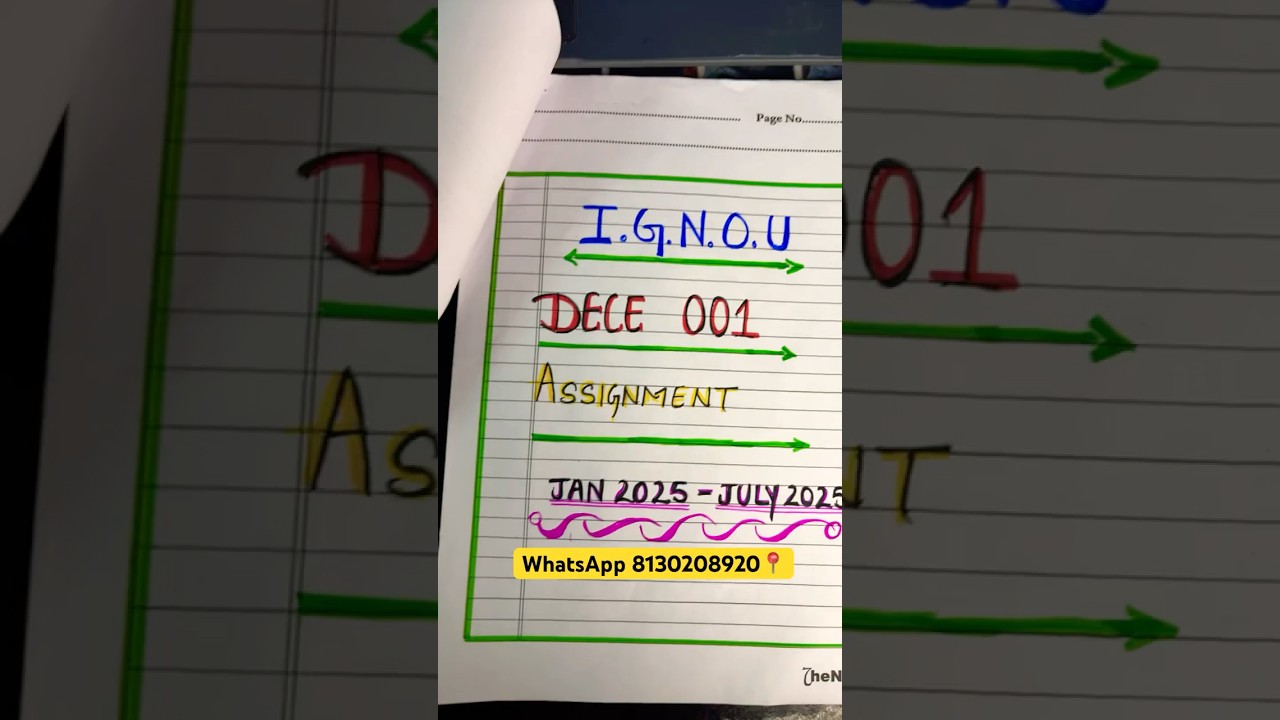 Page No.
I.G.N.O.U
DECE 001
ASSIGNMENT
JAN 2025 - JULY 2025
WhatsApp 8130208920📍